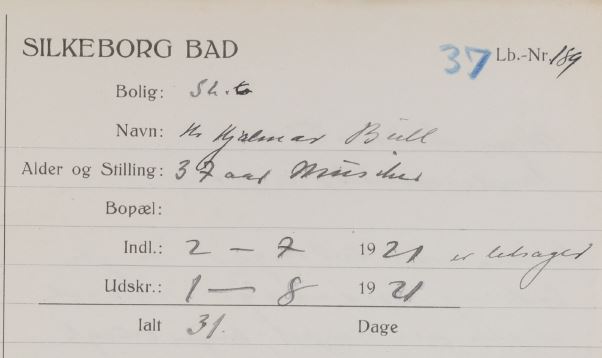 SILKEBORG BAD 37 Lb.-Nr. 189
Bolig: Sh.
Navn: Hr Hjalmar Bull
Alder og Stilling: 37 aar Musiker
Bopæl:
Indl.: 2 — 7 1921 er ledsaget
Udskr.: 1 — 8 1921
Ialt 31. Dage